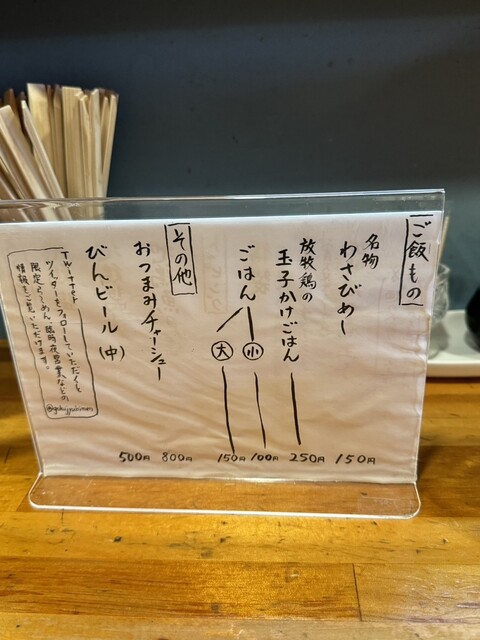 ご飯もの
名物
わさびめし
150円
放牧鶏の
玉子かけごはん
250円
ごはん
小
100円
大
150円
その他
おつまみチャーシュー
800円
びんビール(中)
500円
ツイッターをフォローしていただくと
限定らーめん、臨時夜営業などの
情報をご覧いただけます。